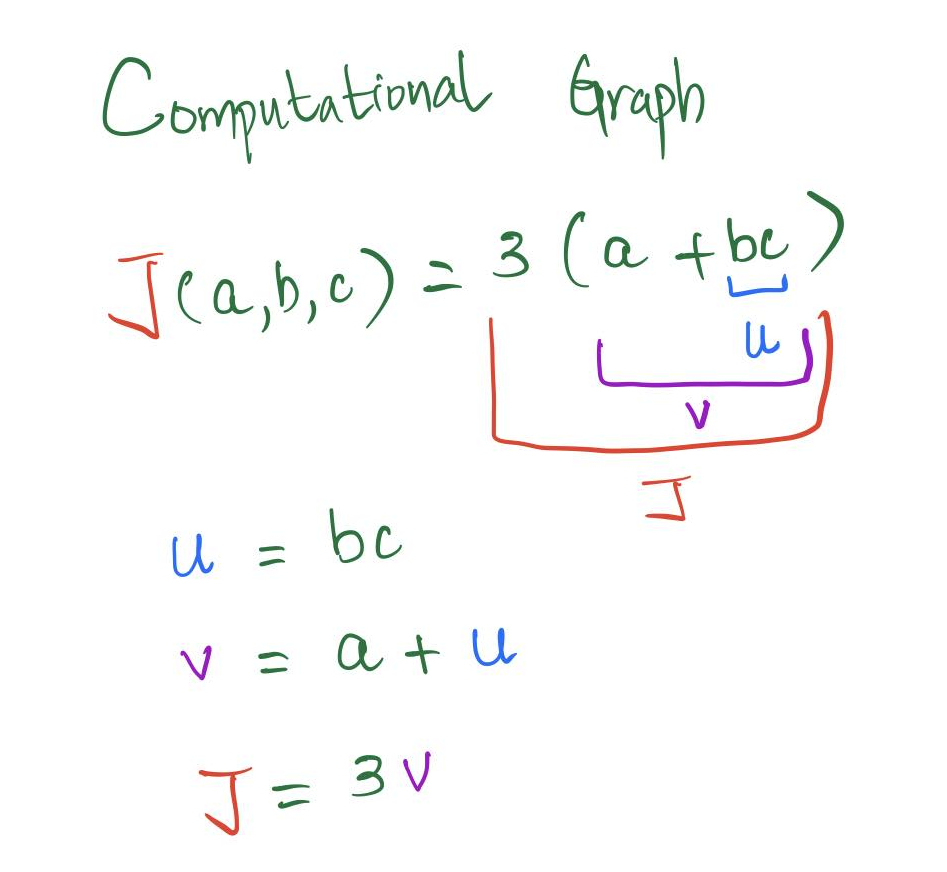 Computational Graph
J(a,b,c) = 3(a + bc)
u
v
J
u = bc
v = a + u
J = 3v